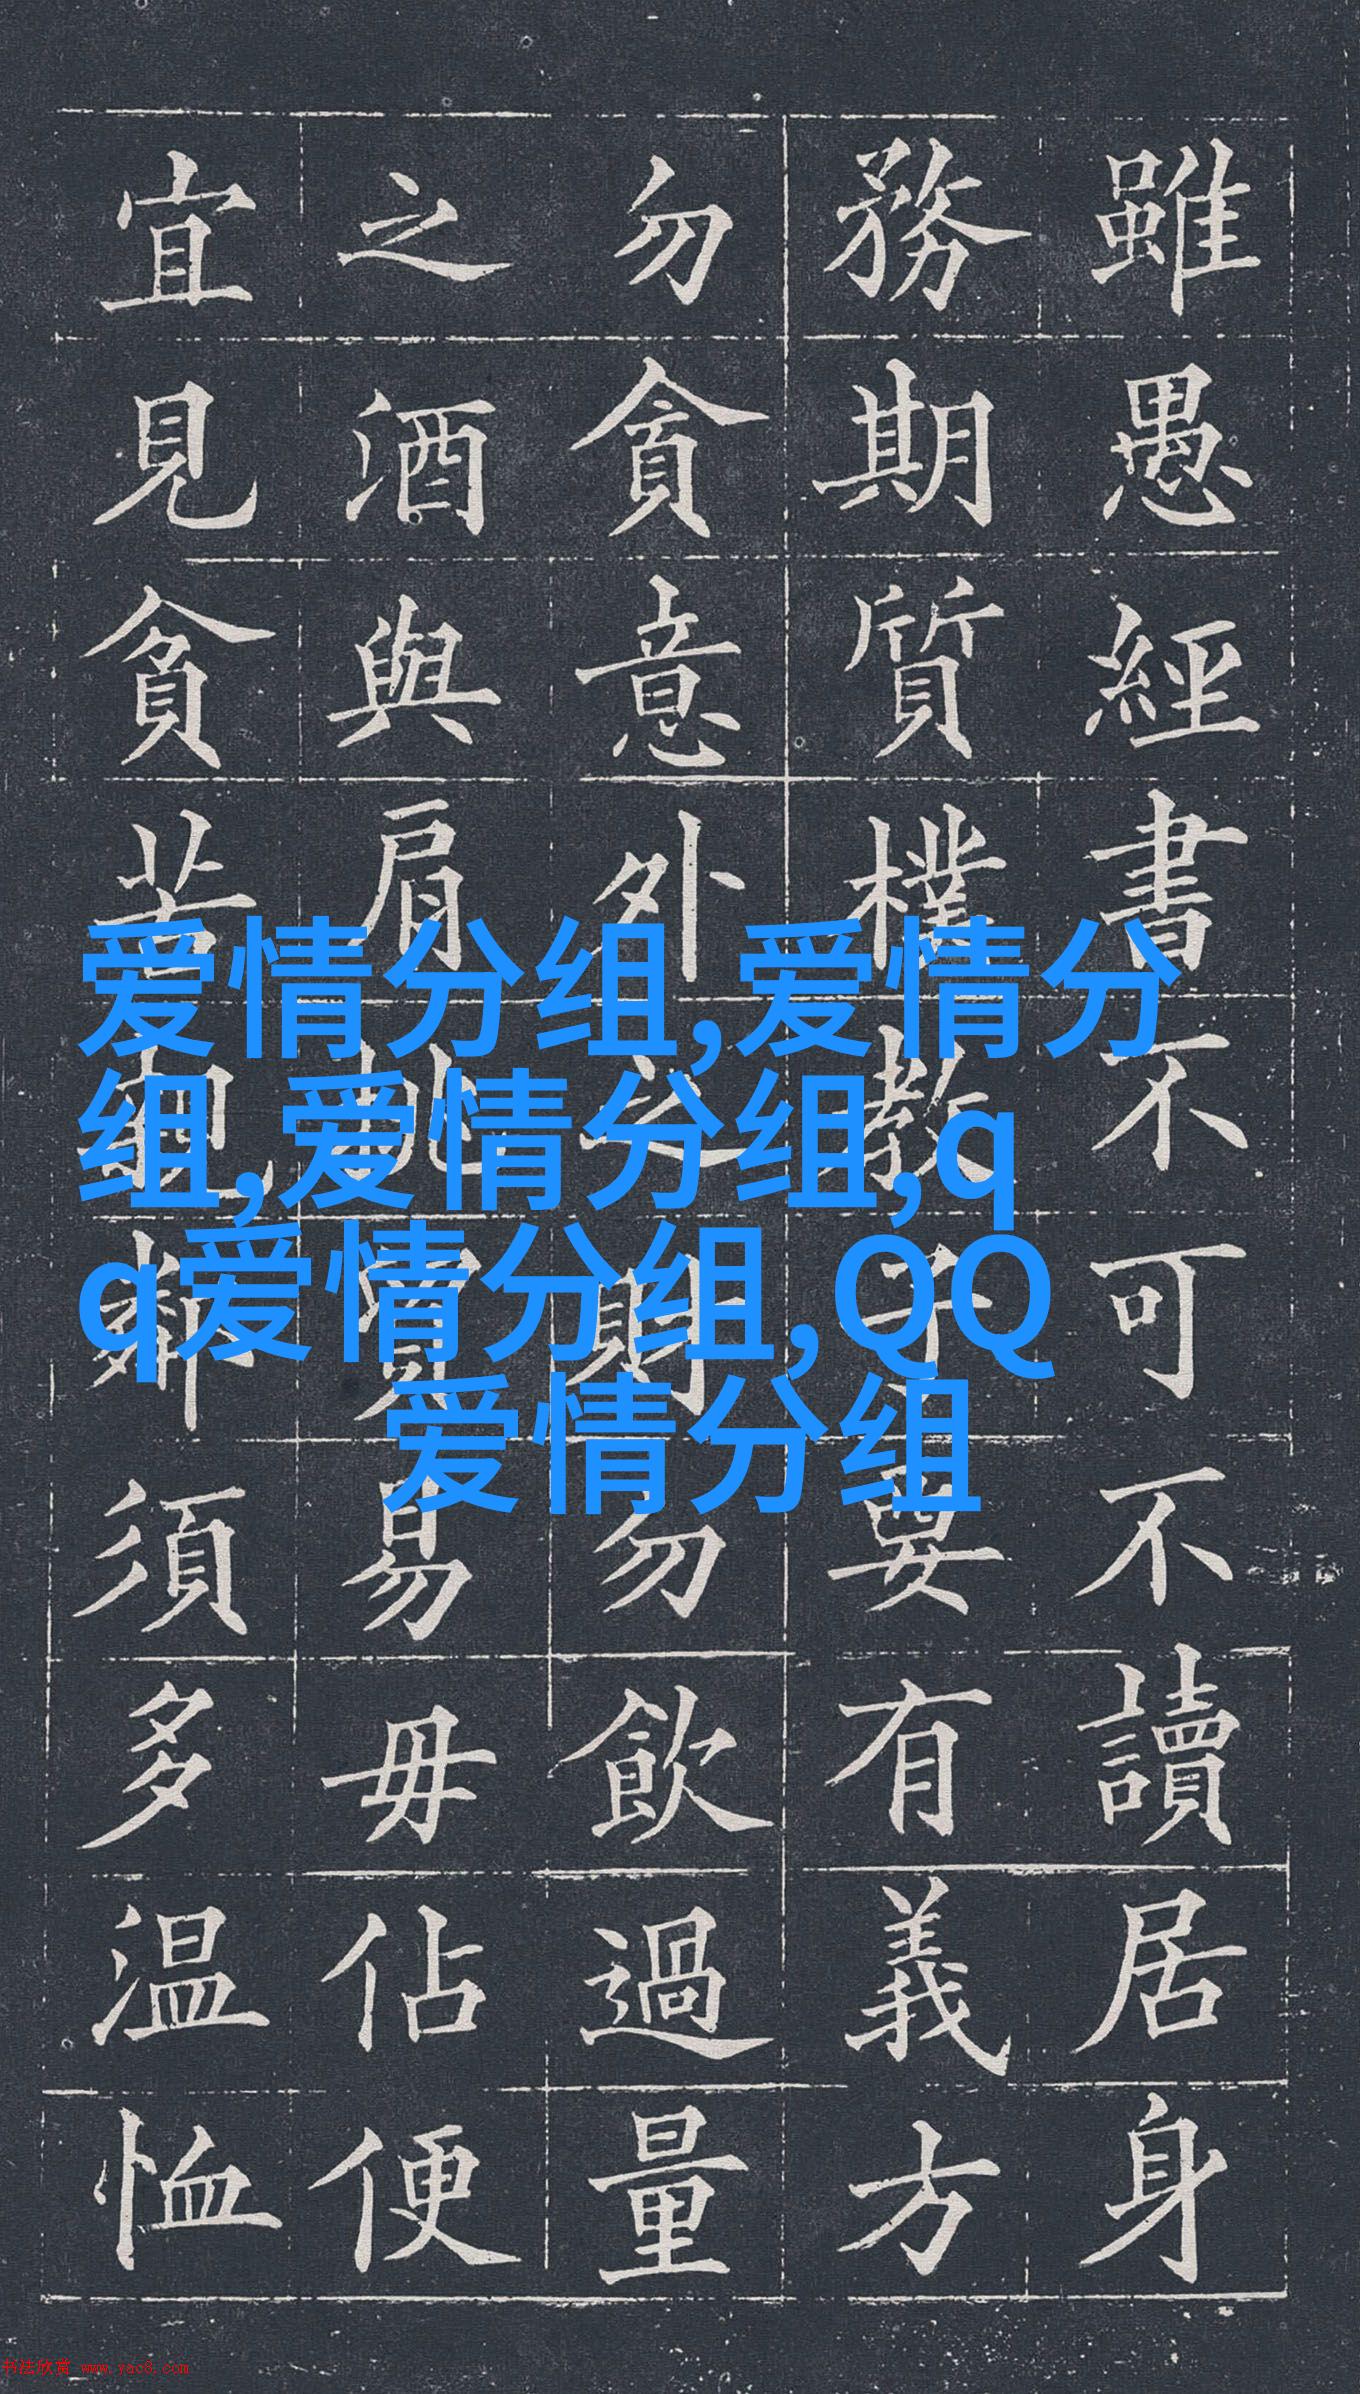 雖愚經書不可不讀居身
務期質樸教子要有義方
勿貪意外之財勿飲過量
之酒與肩挑貿易毋佔便
宜見貧苦親鄰須多温恤
爱情分组,爱情分
组,爱情分组,q
q爱情分组,QQ
爱情分组
书法欣赏 www.yac8.com